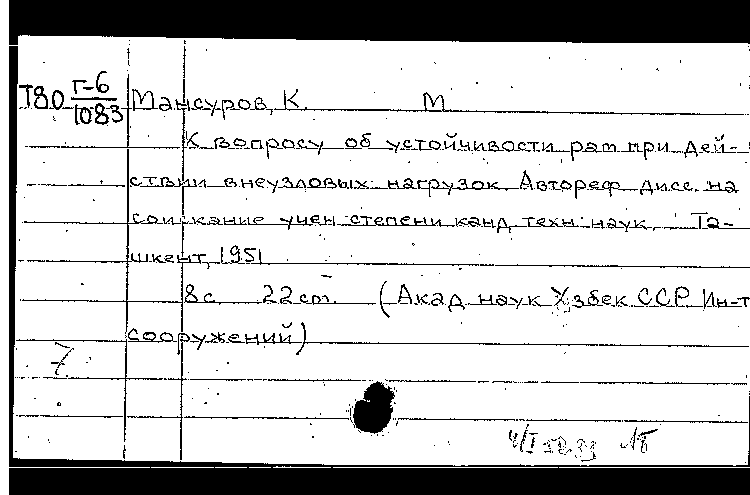 Т80 Г-6/1083 Мансуров, К. М
К вопросу об устойчивости рам при дей-
ствии внеузловых нагрузок. Автореф. дисс. на
соискание учен. степени канд. техн. наук. Та-
шкент, 1951
8с. 22см. (Акад. наук Узбек ССР. Ин-т
сооружений)
7